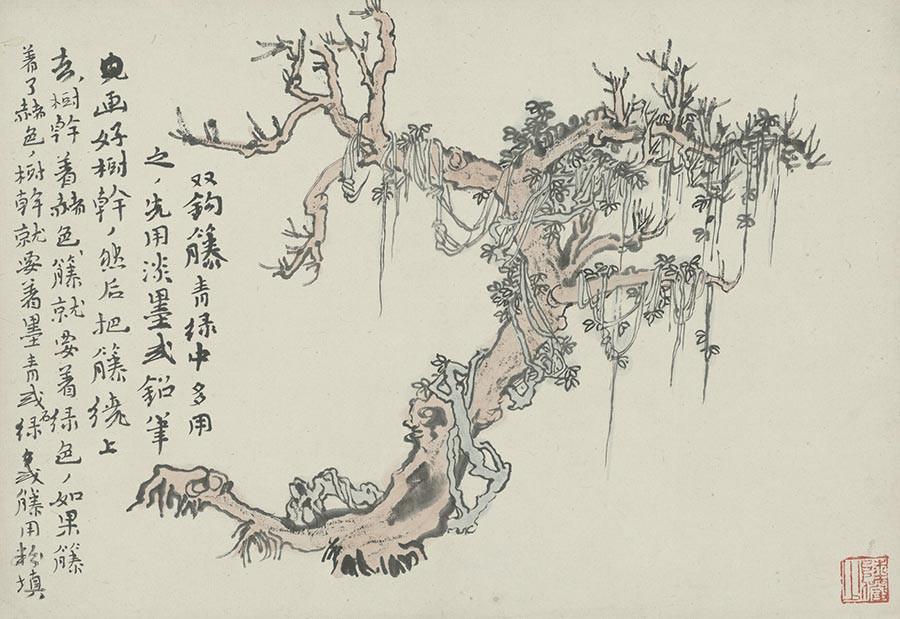 双鈎籐青绿中多用
之，先用淡墨或鉛筆
勾画好樹幹，然后把籐繞上
去，樹幹着赭色，籐就要着绿色，如果籐
着了赭色，樹幹就要着墨青或石绿，或籐用粉填